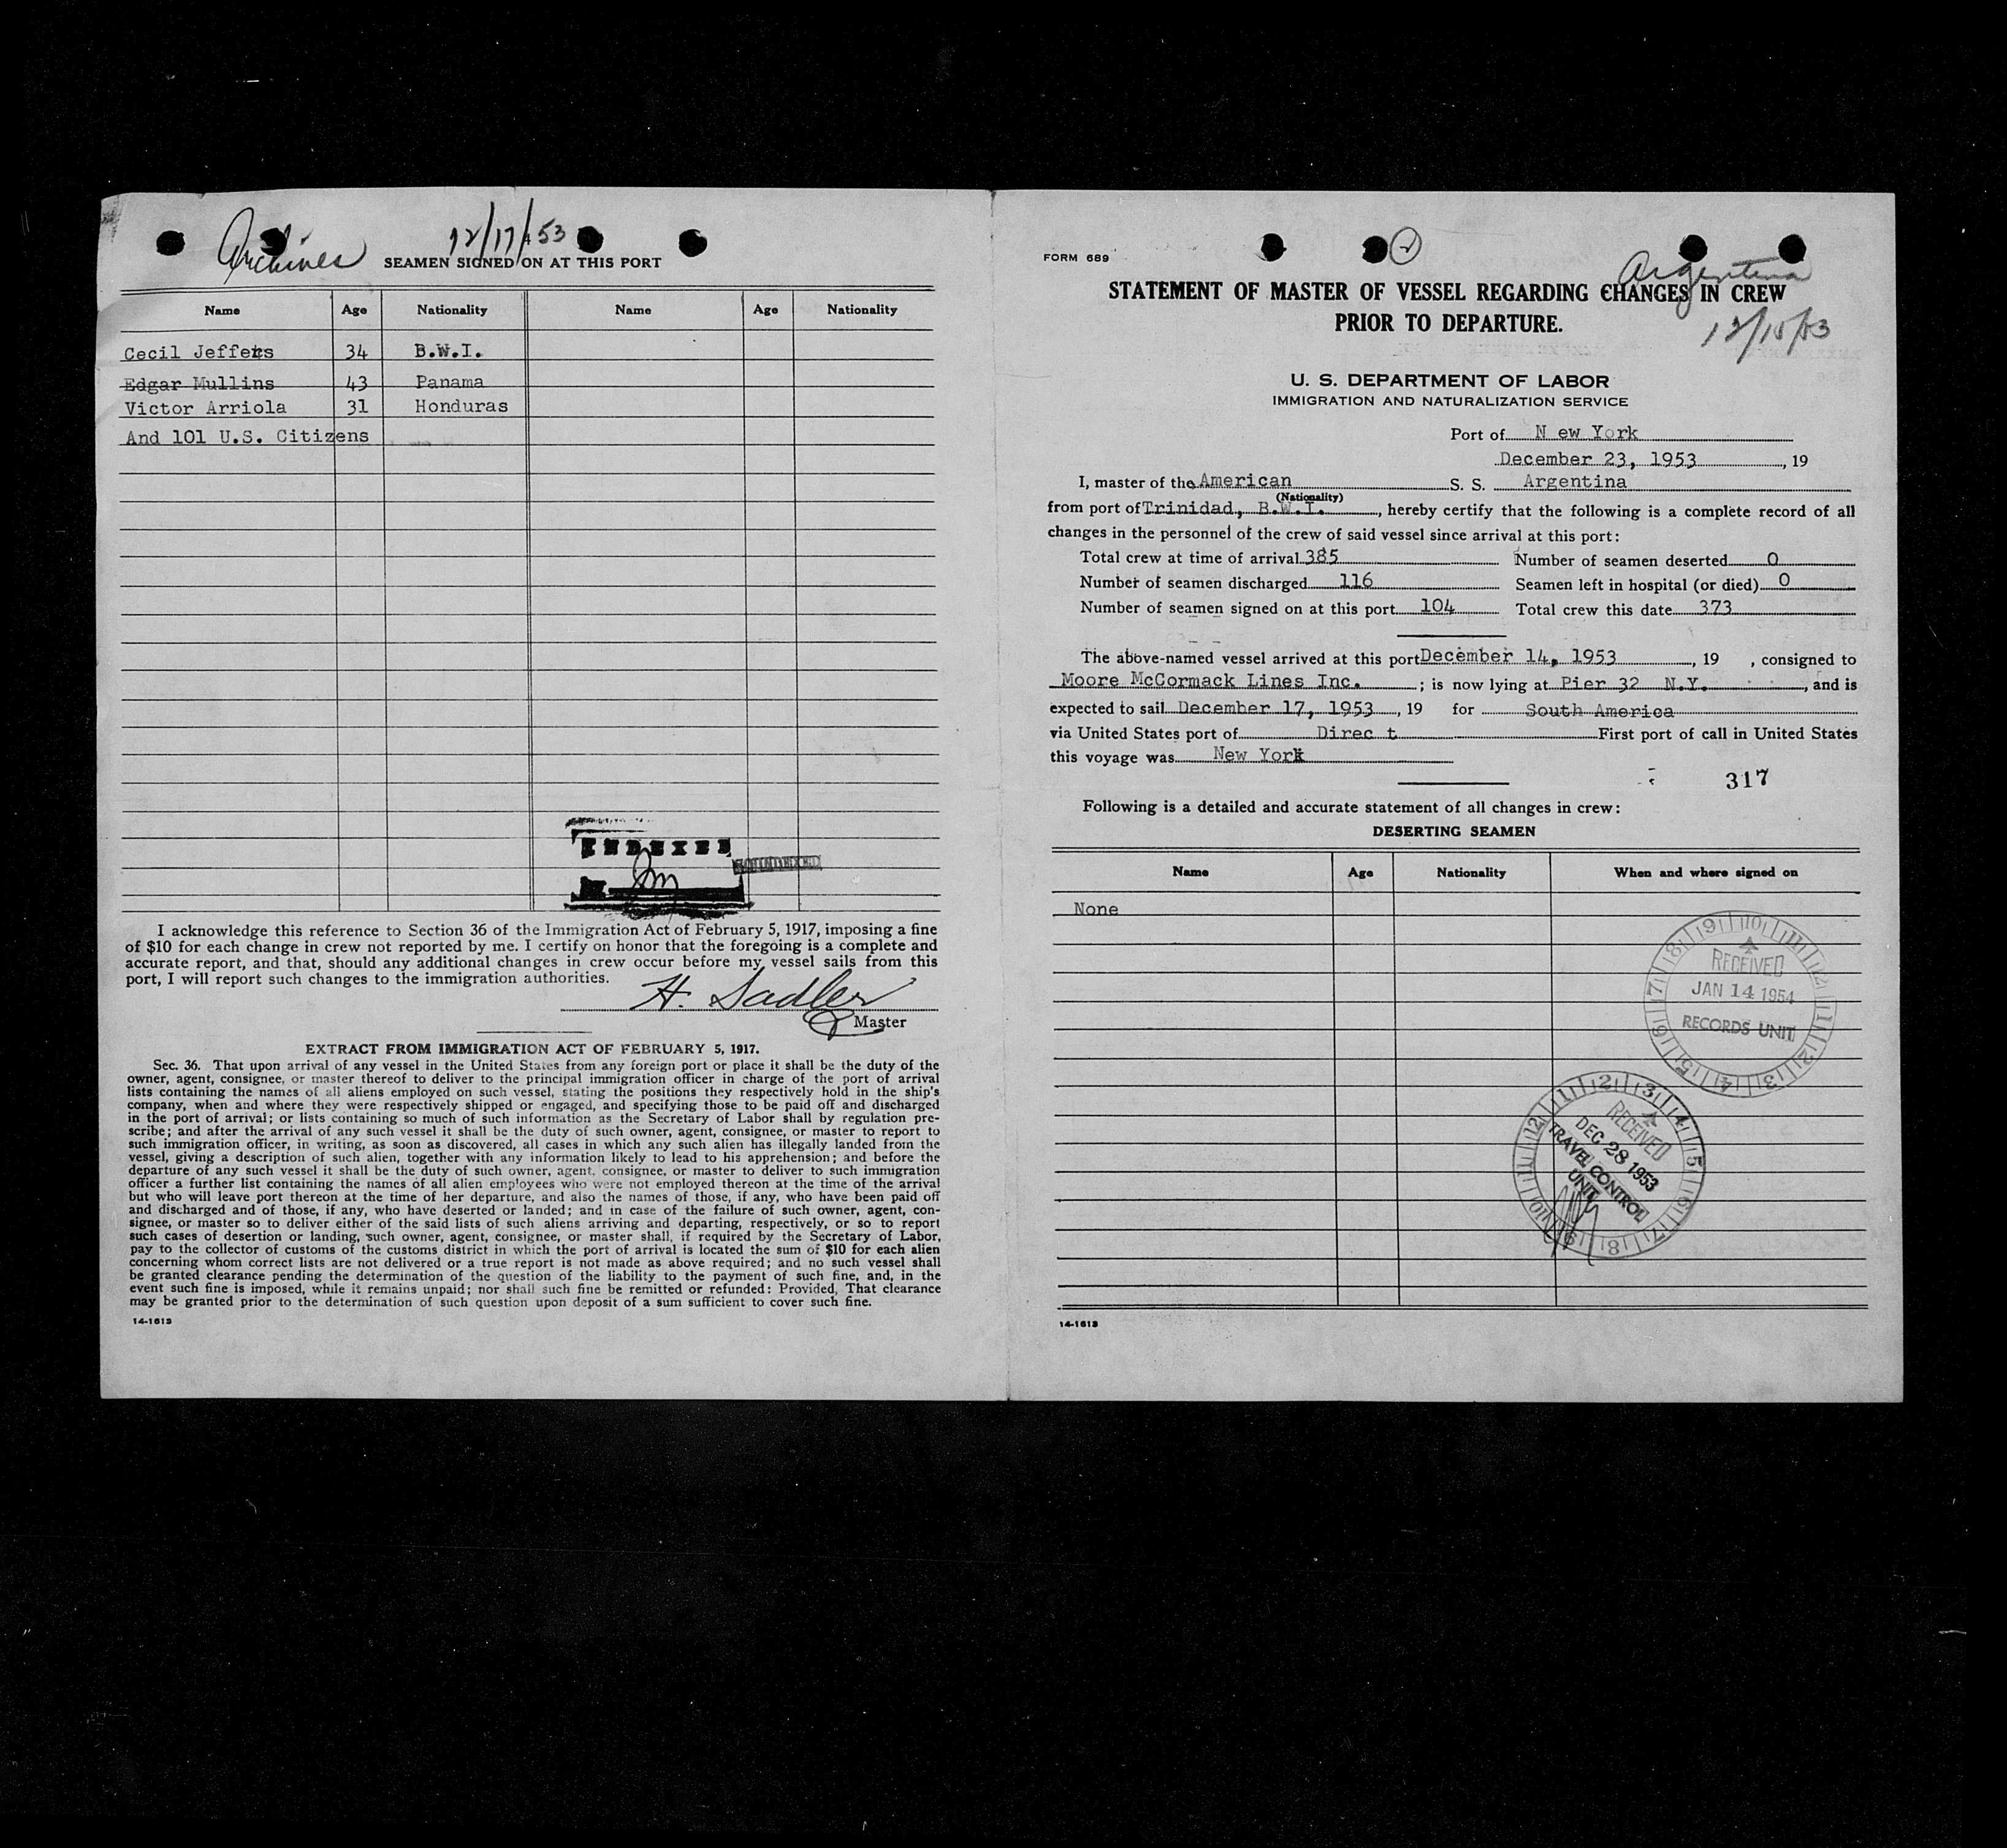 Archives 12/17/53
SEAMEN SIGNED ON AT THIS PORT
Name Age Nationality Name Age Nationality
Cecil Jeffers 34 B.W.I.
Edgar Mullins 43 Panama
Victor Arriola 31 Honduras
And 101 U.S. Citizens
INDEXED
SOUNDEXED
I acknowledge this reference to Section 36 of the Immigration Act of February 5, 1917, imposing a fine
of $10 for each change in crew not reported by me. I certify on honor that the foregoing is a complete and
accurate report, and that, should any additional changes in crew occur before my vessel sails from this
port, I will report such changes to the immigration authorities.
H. Sadler
Master
EXTRACT FROM IMMIGRATION ACT OF FEBRUARY 5, 1917.
Sec. 36. That upon arrival of any vessel in the United States from any foreign port or place it shall be the duty of the
owner, agent, consignee, or master thereof to deliver to the principal immigration officer in charge of the port of arrival
lists containing the names of all aliens employed on such vessel, stating the positions they respectively hold in the ship's
company, when and where they were respectively shipped or engaged, and specifying those to be paid off and discharged
in the port of arrival; or lists containing so much of such information as the Secretary of Labor shall by regulation pre-
scribe; and after the arrival of any such vessel it shall be the duty of such owner, agent, consignee, or master to report to
such immigration officer, in writing, as soon as discovered, all cases in which any such alien has illegally landed from the
vessel, giving a description of such alien, together with any information likely to lead to his apprehension; and before the
departure of any such vessel it shall be the duty of such owner, agent, consignee, or master to deliver to such immigration
officer a further list containing the names of all alien employees who were not employed thereon at the time of the arrival
but who will leave port thereon at the time of her departure, and also the names of those, if any, who have been paid off
and discharged and of those, if any, who have deserted or landed; and in case of the failure of such owner, agent, con-
signee, or master so to deliver either of the said lists of such aliens arriving and departing, respectively, or so to report
such cases of desertion or landing, such owner, agent, consignee, or master shall, if required by the Secretary of Labor,
pay to the collector of customs of the customs district in which the port of arrival is located the sum of $10 for each alien
concerning whom correct lists are not delivered or a true report is not made as above required; and no such vessel shall
be granted clearance pending the determination of the question of the liability to the payment of such fine, and, in the
event such fine is imposed, while it remains unpaid; nor shall such fine be remitted or refunded: Provided, That clearance
may be granted prior to the determination of such question upon deposit of a sum sufficient to cover such fine.
14-1613
FORM 689
2
Argentina
STATEMENT OF MASTER OF VESSEL REGARDING CHANGES IN CREW
PRIOR TO DEPARTURE.
U. S. DEPARTMENT OF LABOR
IMMIGRATION AND NATURALIZATION SERVICE
Port of N ew York
December 23, 1953, 19
I, master of the American S. S. Argentina
(Nationality)
from port of Trinidad, B.W.I., hereby certify that the following is a complete record of all
changes in the personnel of the crew of said vessel since arrival at this port:
Total crew at time of arrival 385 Number of seamen deserted 0
Number of seamen discharged 116 Seamen left in hospital (or died) 0
Number of seamen signed on at this port 104 Total crew this date 373
The above-named vessel arrived at this port December 14, 1953, 19 , consigned to
Moore McCormack Lines Inc. ; is now lying at Pier 32 N.Y. , and is
expected to sail December 17, 1953, 19 for South America
via United States port of Direc t First port of call in United States
this voyage was New York
317
Following is a detailed and accurate statement of all changes in crew:
DESERTING SEAMEN
Name Age Nationality When and where signed on
None
RECEIVED
JAN 14 1954
RECORDS UNIT
RECEIVED
DEC 28 1953
TRAVEL CONTROL
UNIT
14-1613